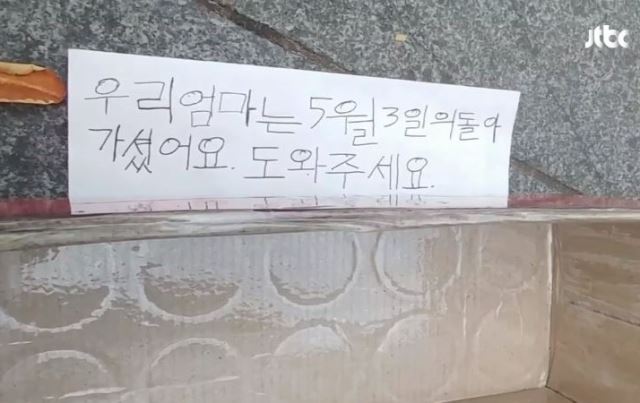 jtbc
우리엄마는 5월3일의돌아
가셨어요. 도와주세요.